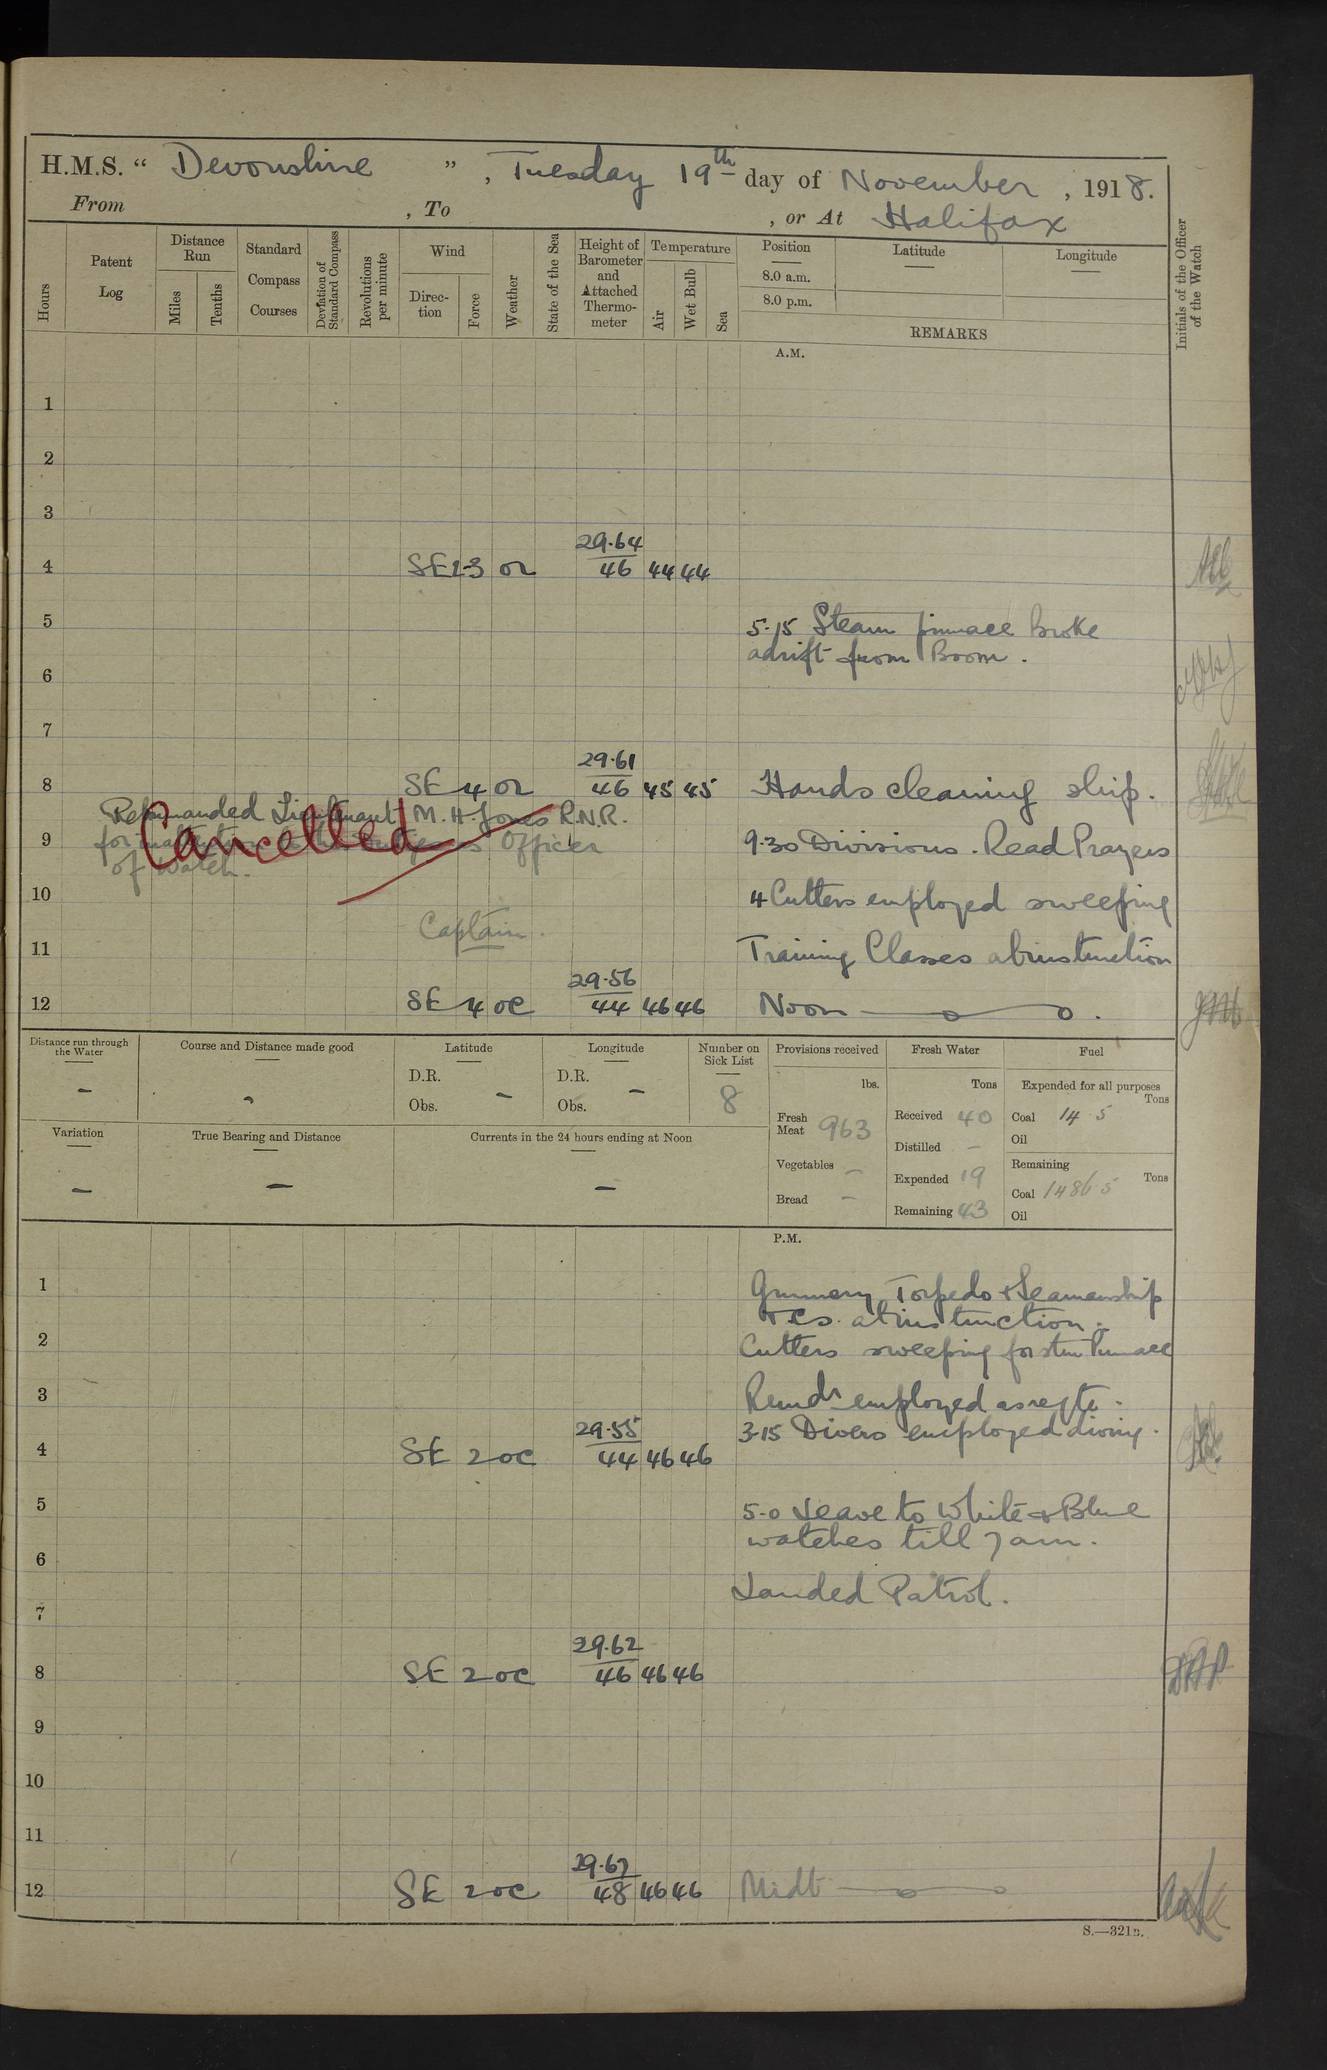 H.M.S. “ Devonshire ” , Tuesday 19th day of November , 1918.
From , To , or At Halifax
Hours
Patent Log
Distance Run
Miles
Tenths
Standard Compass Courses
Deviation of Standard Compass
Revolutions per minute
Wind
Direc-tion
Force
Weather
State of the Sea
Height of Barometer and Attached Thermo-meter
Temperature
Air
Wet Bulb
Sea
Position
8.0 a.m.
8.0 p.m.
Latitude
Longitude
REMARKS
Initials of the Officer of the Watch
A.M.
1
2
3
29.64
4 SE 2-3 or 46 44 44
5 5.15 Steam pinnace broke
adrift from Boom.
6
7
29.61
8 SE 4 or 46 45 45 Hands cleaning ship.
Reprimanded Lieutenant M. H. Jones R.N.R.
Cancelled
for Officer
of Watch.
9 9.30 Divisions. Read Prayers
10 4 Cutters employed sweeping
Captain.
11 Training Classes at instruction
29.56
12 SE 4 oc 44 46 46 Noon
Distance run through the Water
-
Course and Distance made good
-
Latitude
D.R.
Obs. -
Longitude
D.R.
Obs. -
Number on Sick List
8
Provisions received
lbs.
Fresh Meat 963
Vegetables -
Bread -
Fresh Water
Tons
Received 40
Distilled -
Expended 19
Remaining 43
Fuel
Expended for all purposes
Tons
Coal 14.5
Oil
Remaining
Tons
Coal 1486.5
Oil
Variation
-
True Bearing and Distance
-
Currents in the 24 hours ending at Noon
-
P.M.
1 Gunnery Torpedo & Seamanship
T.Cs. at instruction.
2 Cutters sweeping for stm Pinnace
3 Remdr employed as reqte.
29.55 3-15 Divers employed diving.
4 SE 2 oc 44 46 46
5 5-0 Leave to White & Blue
watches till 7 am.
6
Landed Patrol.
7
29.62
8 SE 2 oc 46 46 46
9
10
11
29.67
12 SE 2 oc 48 46 46 Midt
S.—321B.